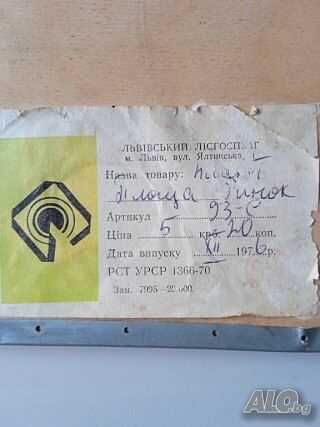 ЛЬВІВСЬКИЙ ЛІСГОСПЗАГ
м. Львів, вул. Ялтинська,
Назва товару:
Площа Ринок
Артикул 93-С
Ціна 5 крб. 20 коп.
Дата випуску XII 1976 р.
РСТ УРСР 1366-70
Зам. 7995—20.000.
ALO.bg